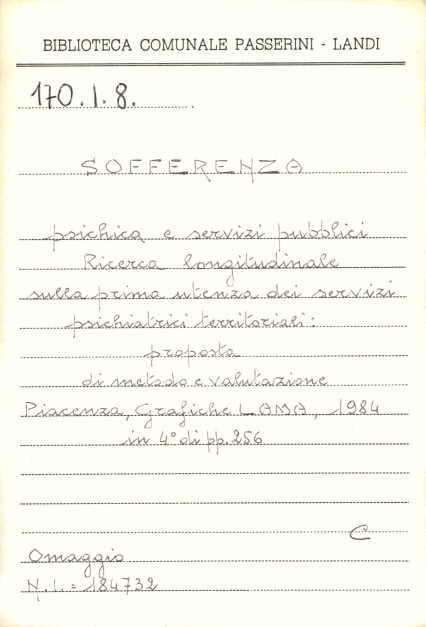 BIBLIOTECA COMUNALE PASSERINI - LANDI
170.I.8.
SOFFERENZA
psichica e servizi pubblici
Ricerca longitudinale
sulla prima utenza dei servizi
psichiatrici territoriali:
proposta
di metodo e valutazione
Piacenza, Grafiche LAMA, 1984
in 4° di pp. 256
C
Omaggio
N.I.= 184732